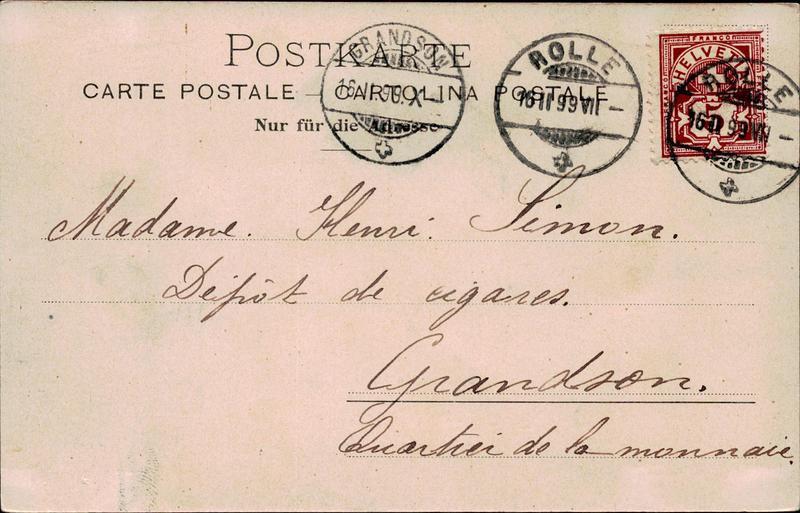 POSTKARTE
CARTE POSTALE — CARTOLINA POSTALE
Nur für die Adresse
GRANDSON
16.II.99.X
ROLLE
16 II 99 VII
FRANCO
HELVETIA
ROLLE
16 II 99 VII
Madame. Henri. Simon.
Dépôt de cigares.
Grandson.
Quartier de la monnaie.